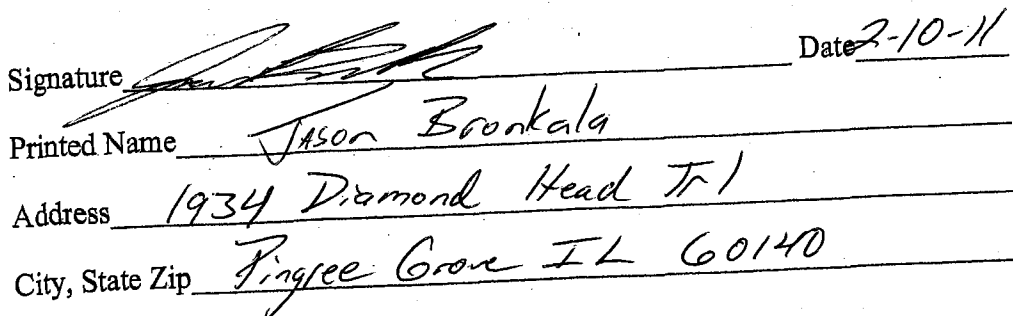 Signature Date 2-10-11
Printed Name Jason Bronkala
Address 1934 Diamond Head Trl
City, State Zip Pingree Grove IL 60140